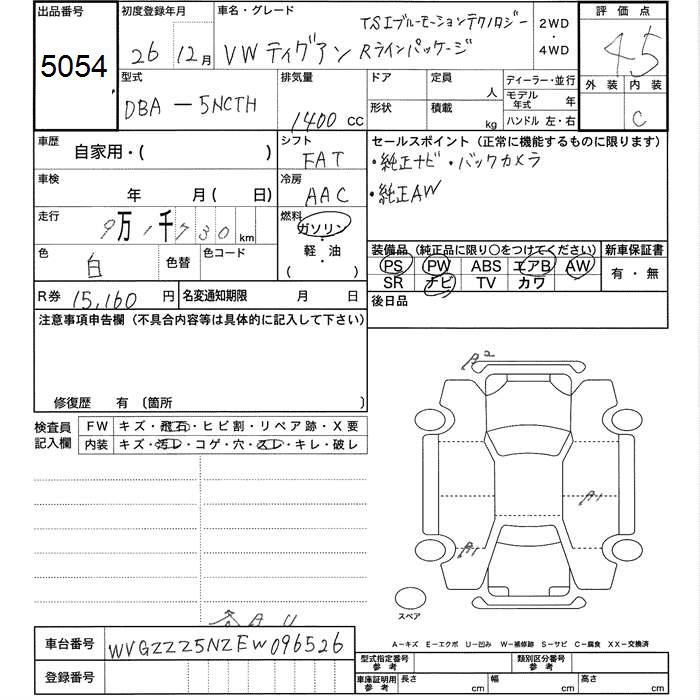 出品番号 初度登録年月 車名・グレード 評価点
5054 26年 12月 VW ティグアン TSIブルーモーションテクノロジー Rラインパッケージ 2WD・4WD 45
型式 排気量 ドア 定員 人 ディーラー・並行 外装 内装
DBA-5NCTH 1400 CC 形状 積載 kg モデル年式 年 ハンドル 左・右 C
車歴 自家用・( ) シフト FAT セールスポイント (正常に機能するものに限ります)
・純正ナビ・バックカメラ
・純正AW
車検 年 月 ( 日) 冷房 AAC
走行 9万1千730km 燃料 ガソリン・軽・油 ( )
色 白 色替 色コード
装備品 (純正品に限り○をつけてください) 新車保証書
PS PW ABS エアB AW 有・無
SR ナビ TV カワ
R券 15,160円 名変通知期限 月 日 後日品
注意事項申告欄 (不具合内容等は具体的に記入して下さい)
修復歴 有 〔箇所 〕
検査員記入欄 FW キズ・飛石・ヒビ割・リペア跡・X要
内装 キズ・汚レ・コゲ・穴・スレ・キレ・破レ
A2
A1
A1
スペア
A-キズ E-エクボ U-凹み W-補修跡 S-サビ C-腐食 XX-交換済
車台番号 WVGZZZ5NZEW096526
型式指定番号 参考 類別区分番号 参考
登録番号
車庫証明用 参考 長さ cm 幅 cm 高さ cm